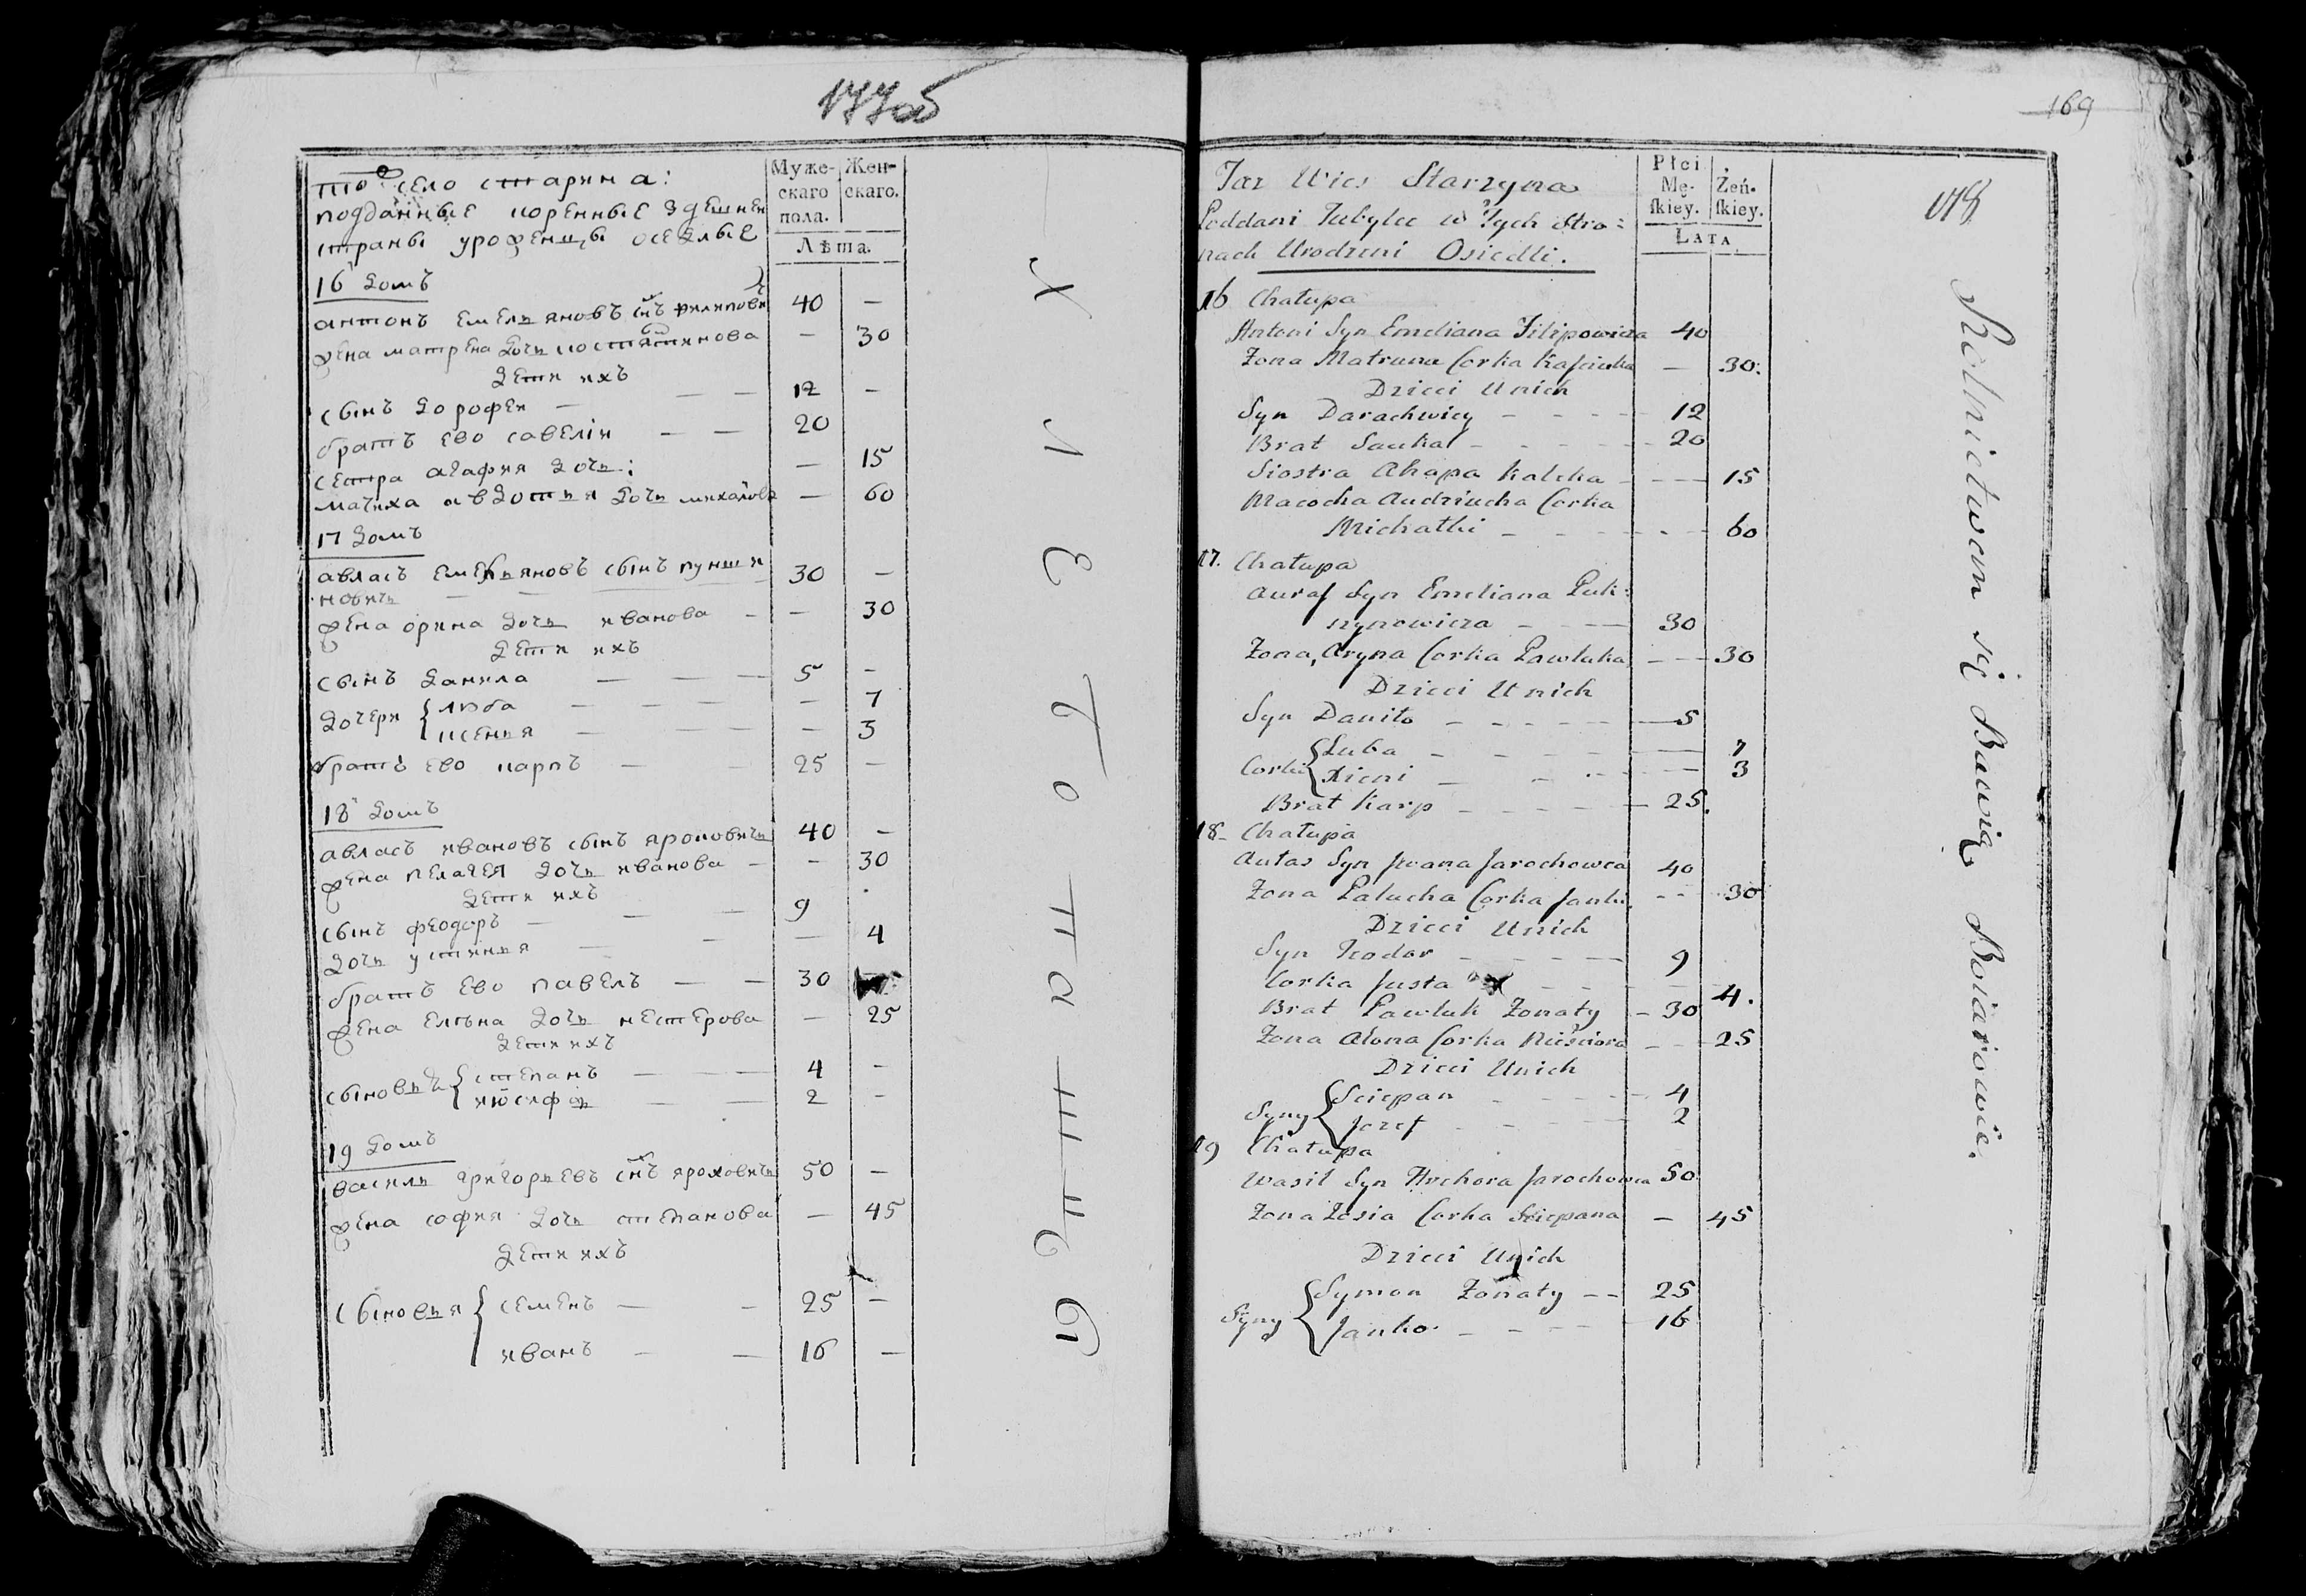 177об
то село старина:
подданные коренные здешнеи
страны уроженцы оседлые
Муже-
скаго
пола.
Жен-
скаго.
Лѣта.
16 домъ
антонъ емельяновъ снъ филипови 40 —
жена матрена дочь костянтинова — 30
дети ихъ
сынъ дорофеи — — — 12 —
братъ ево савелiи — — 20
сестра агафия дочь: — 15
мачиха авдотья дочь михайлова — 60
17 домъ
авласъ емельяновъ сынъ
новичь — — 30 —
жена орина дочь иванова — — 30
дети ихъ
сынъ данила — — — 5 —
дочери { люба — — — — 7
ксенья — — — — 3
братъ ево карпъ — — 25 —
18 домъ
авласъ ивановъ сынъ яроховичь 40 —
жена пелагея дочь иванова — — 30
дети ихъ
сынъ феодоръ — — — 9
дочь устинья — — — 4
братъ ево павелъ — — 30
жена елѣна дочь нестерова — 25
дети ихъ
сыновья { степанъ — — — 4 —
иосифъ — — 2 —
19 домъ
василь григорьевъ снъ яроховичь 50 —
жена софия дочь степанова — 45
дети ихъ
сыновья { семенъ — — 25 —
иванъ — — 16 —
169
Taz Wies Starzyna
Poddani Tubylce w Tych Stro:
nach Urodzeni Osiedli.
Płci
Mę-
ſkiey.
Żeń-
ſkiey.
LATA
16 Chałupa
Antoni Syn Emeliana Filipowicza 40
Zona Matruna Corka — 30:
Dzieci Unich
Syn Darachwiey - - - - 12
Brat Sauka - - - - - 20
Siostra Ahapa Kaleka - - - - 15
Macocha Audziucha Corka
Michałki - - - - - 60
17. Chałupa
Auras Syn Emeliana
- - - 30
Zona, Aryna Corka Pawluka - - - 30
Dzieci Unich
Syn Daniło - - - - - 5
Corki { Luba - - - - - 7
Xieni - - - - - 3
Brat Karp - - - - - 25.
18- Chałupa
Aułas Syn Jwana Jarochowca 40
Zona Palucha Corka Janki. - - 30
Dzieci Unich
Syn Teodor - - - - - 9
Corka Justa - - - - 4.
Brat Pawluk Zonaty - 30
Zona Alona Corka Nieściora - - - 25
Dzieci Unich
Syny { Sciepan - - - - 4
Jozef - - - - - 2
19 Chałupa
Wasil Syn Hrehora Jarochowca 50
Zona Zosia Corka Sciepana — 45
Dzieci Unich
Syny { Symon Zonaty - - 25
Janko. - - - - 16
Rolnictwem się Bawią Boiarowie.